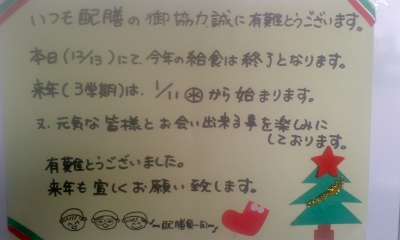 いつも配膳の御協力誠に有難とうございます。
本日(12/13)にて、今年の給食は終了となります。
来年(3学期)は、1/11㊌から始まります。
又、元気な皆様とお会い出来る事を楽しみに
しております。
有難とうございました。
来年も宜しくお願い致します。
配膳員一同